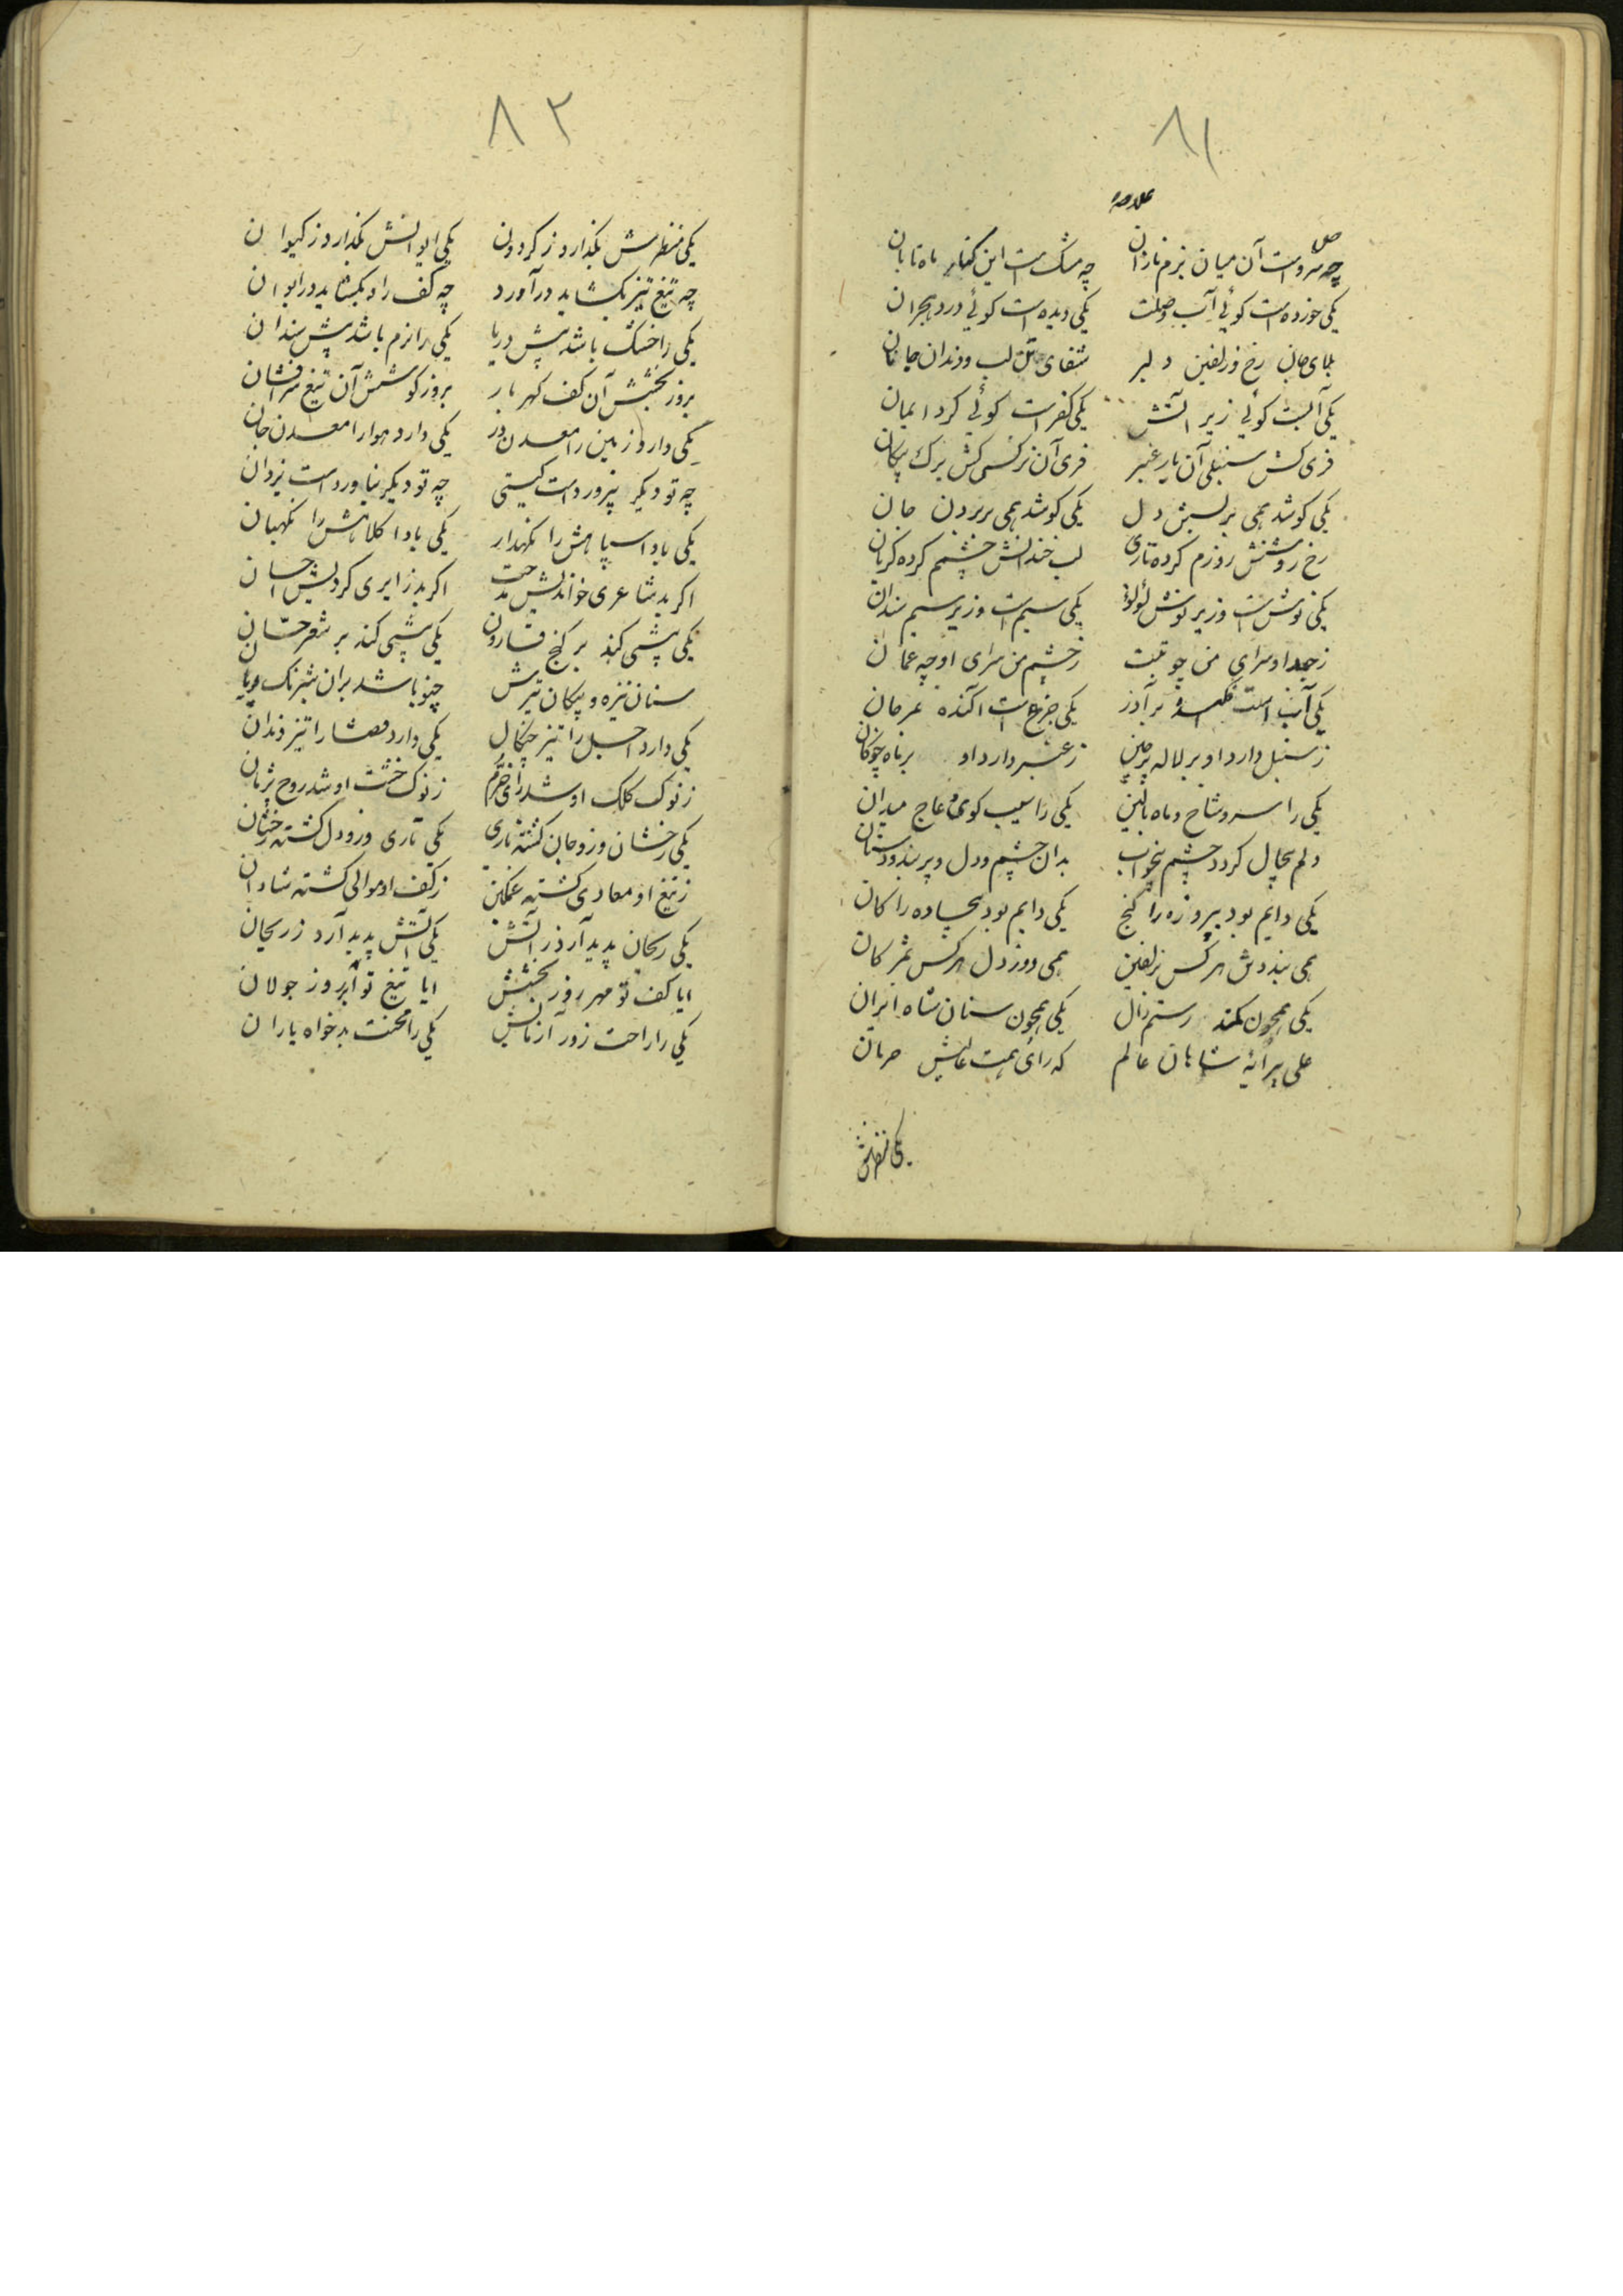 ۸۱
چه سروست آن میان بزم نازان چه مشک است این کنار ماه تابان
یکی خورده است گوئی آب وصلت یکی دیده است گوئی درد هجران
بلای جان رخ و زلفین دلبر شفای دل لب و دندان جانان
یکی آبست گوئی زیر آتش یکی کفرست گوئی گرد ایمان
فری آن کش سنبلی بار عنبر فری آن نرگسی کش برگ پیکان
یکی کوشد همی بر بستن دل یکی کوشد همی بر بردن جان
رخ روشنش روزم کرده تاری لب خندانش چشمم کرده گریان
یکی نوش است و زیر نوش لؤلؤ یکی سیم است و زیر سیم سندان
ز جعد او سرای من چو تبت ز چشم من سرای او چه عمان
یکی جزع است آکنده بمرجان
ز سنبل دارد او بر لاله پرچین ز عنبر دارد او بر ماه چوگان
یکی را سرو شاخ و ماه بالین یکی را سیب گوی و عاج میدان
دلم بیجال کردد چشم بیخواب بدان چشم و دل و پر بند و دستان
یکی دایم بود پیروزه را گنج یکی دایم بود بیجاده را کان
همی بنددش هر کس بزلفین همی دوزد دل هر کس بمژگان
یکی همچون کمند رستم زال یکی همچون سنان شاه ایران
علی پیرایه شاهان عالم که رای همت عالیش حرمان
یکی منظرش
۸۲
یکی منظرش بگذارد ز گردون یکی ایوانش بگذارد ز کیوان
چه تیغ تیز بگشاید درآورد چه کف راد بگشاید در ایوان
یکی را خشک باشد پیش دریا یکی را نرم باشد پیش سندان
بروز بخشش آن کف گهربار بروز کوشش آن تیغ سرافشان
یکی دارد زمین را معدن در یکی دارد هوا را معدن جان
چه تو دیگر نپرورد است گیتی چه تو دیگر نیاورد است یزدان
یکی بادا سپاهش را نگهدار یکی بادا کلاهش را نگهبان
اگر بد شاعری خواندیش مدحت اگر بد زایری کردیش احسان
یکی پیشی کند بر گنج قارون یکی پیشی کند بر شعر حسان
سنان نیزه و پیکان تیرش چنو باشد بران شبرنگ پویان
یکی دارد اجل را تیز چنگال یکی دارد قضا را تیز دندان
ز نوک کلک او شد رای خرم ز نوک خشت او شد روح پژمان
یکی رخشان و زو جان گشته تاری یکی تاری و زو دل گشته رخشان
ز تیغ او معادی گشته غمگین ز کف او موالی گشته شادان
یکی ریحان پدید آرد ز آتش یکی آتش پدید آرد ز ریحان
ایا کف تو مهر روز بخشش ایا تیغ تو ابر روز جولان
یکی را راحت زور آزمایش یکی را محنت بدخواه باران